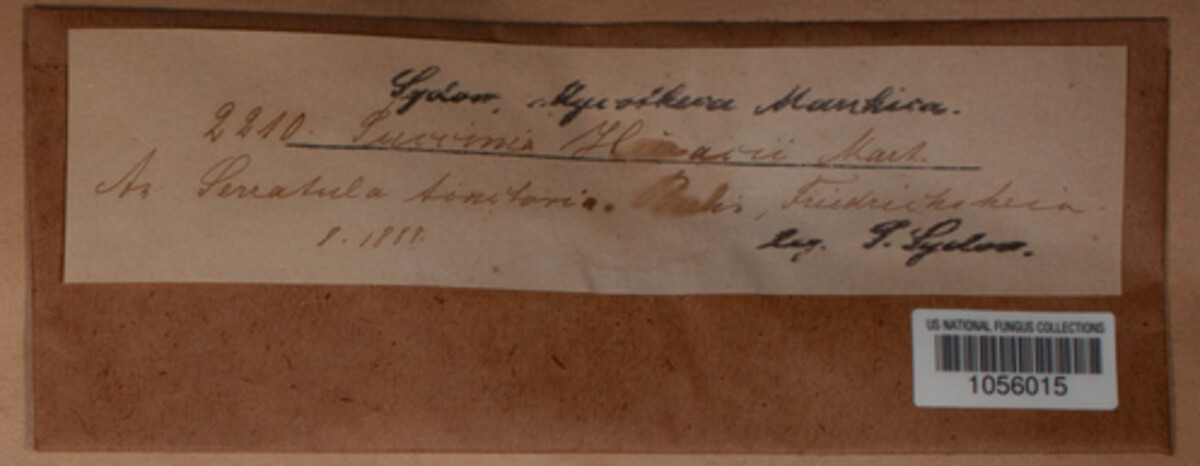 Sydow, Mycotheca Marchica.
2210. Puccinia Hieracii Mart.
An Serratula tinctoria. Berlin, Friedrichshain.
8. 1888.
leg. P. Sydow.
US NATIONAL FUNGUS COLLECTIONS
1056015